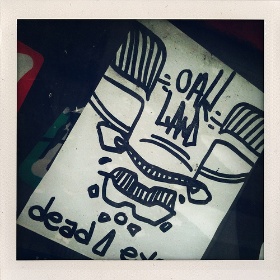 OAK
LAND
dead